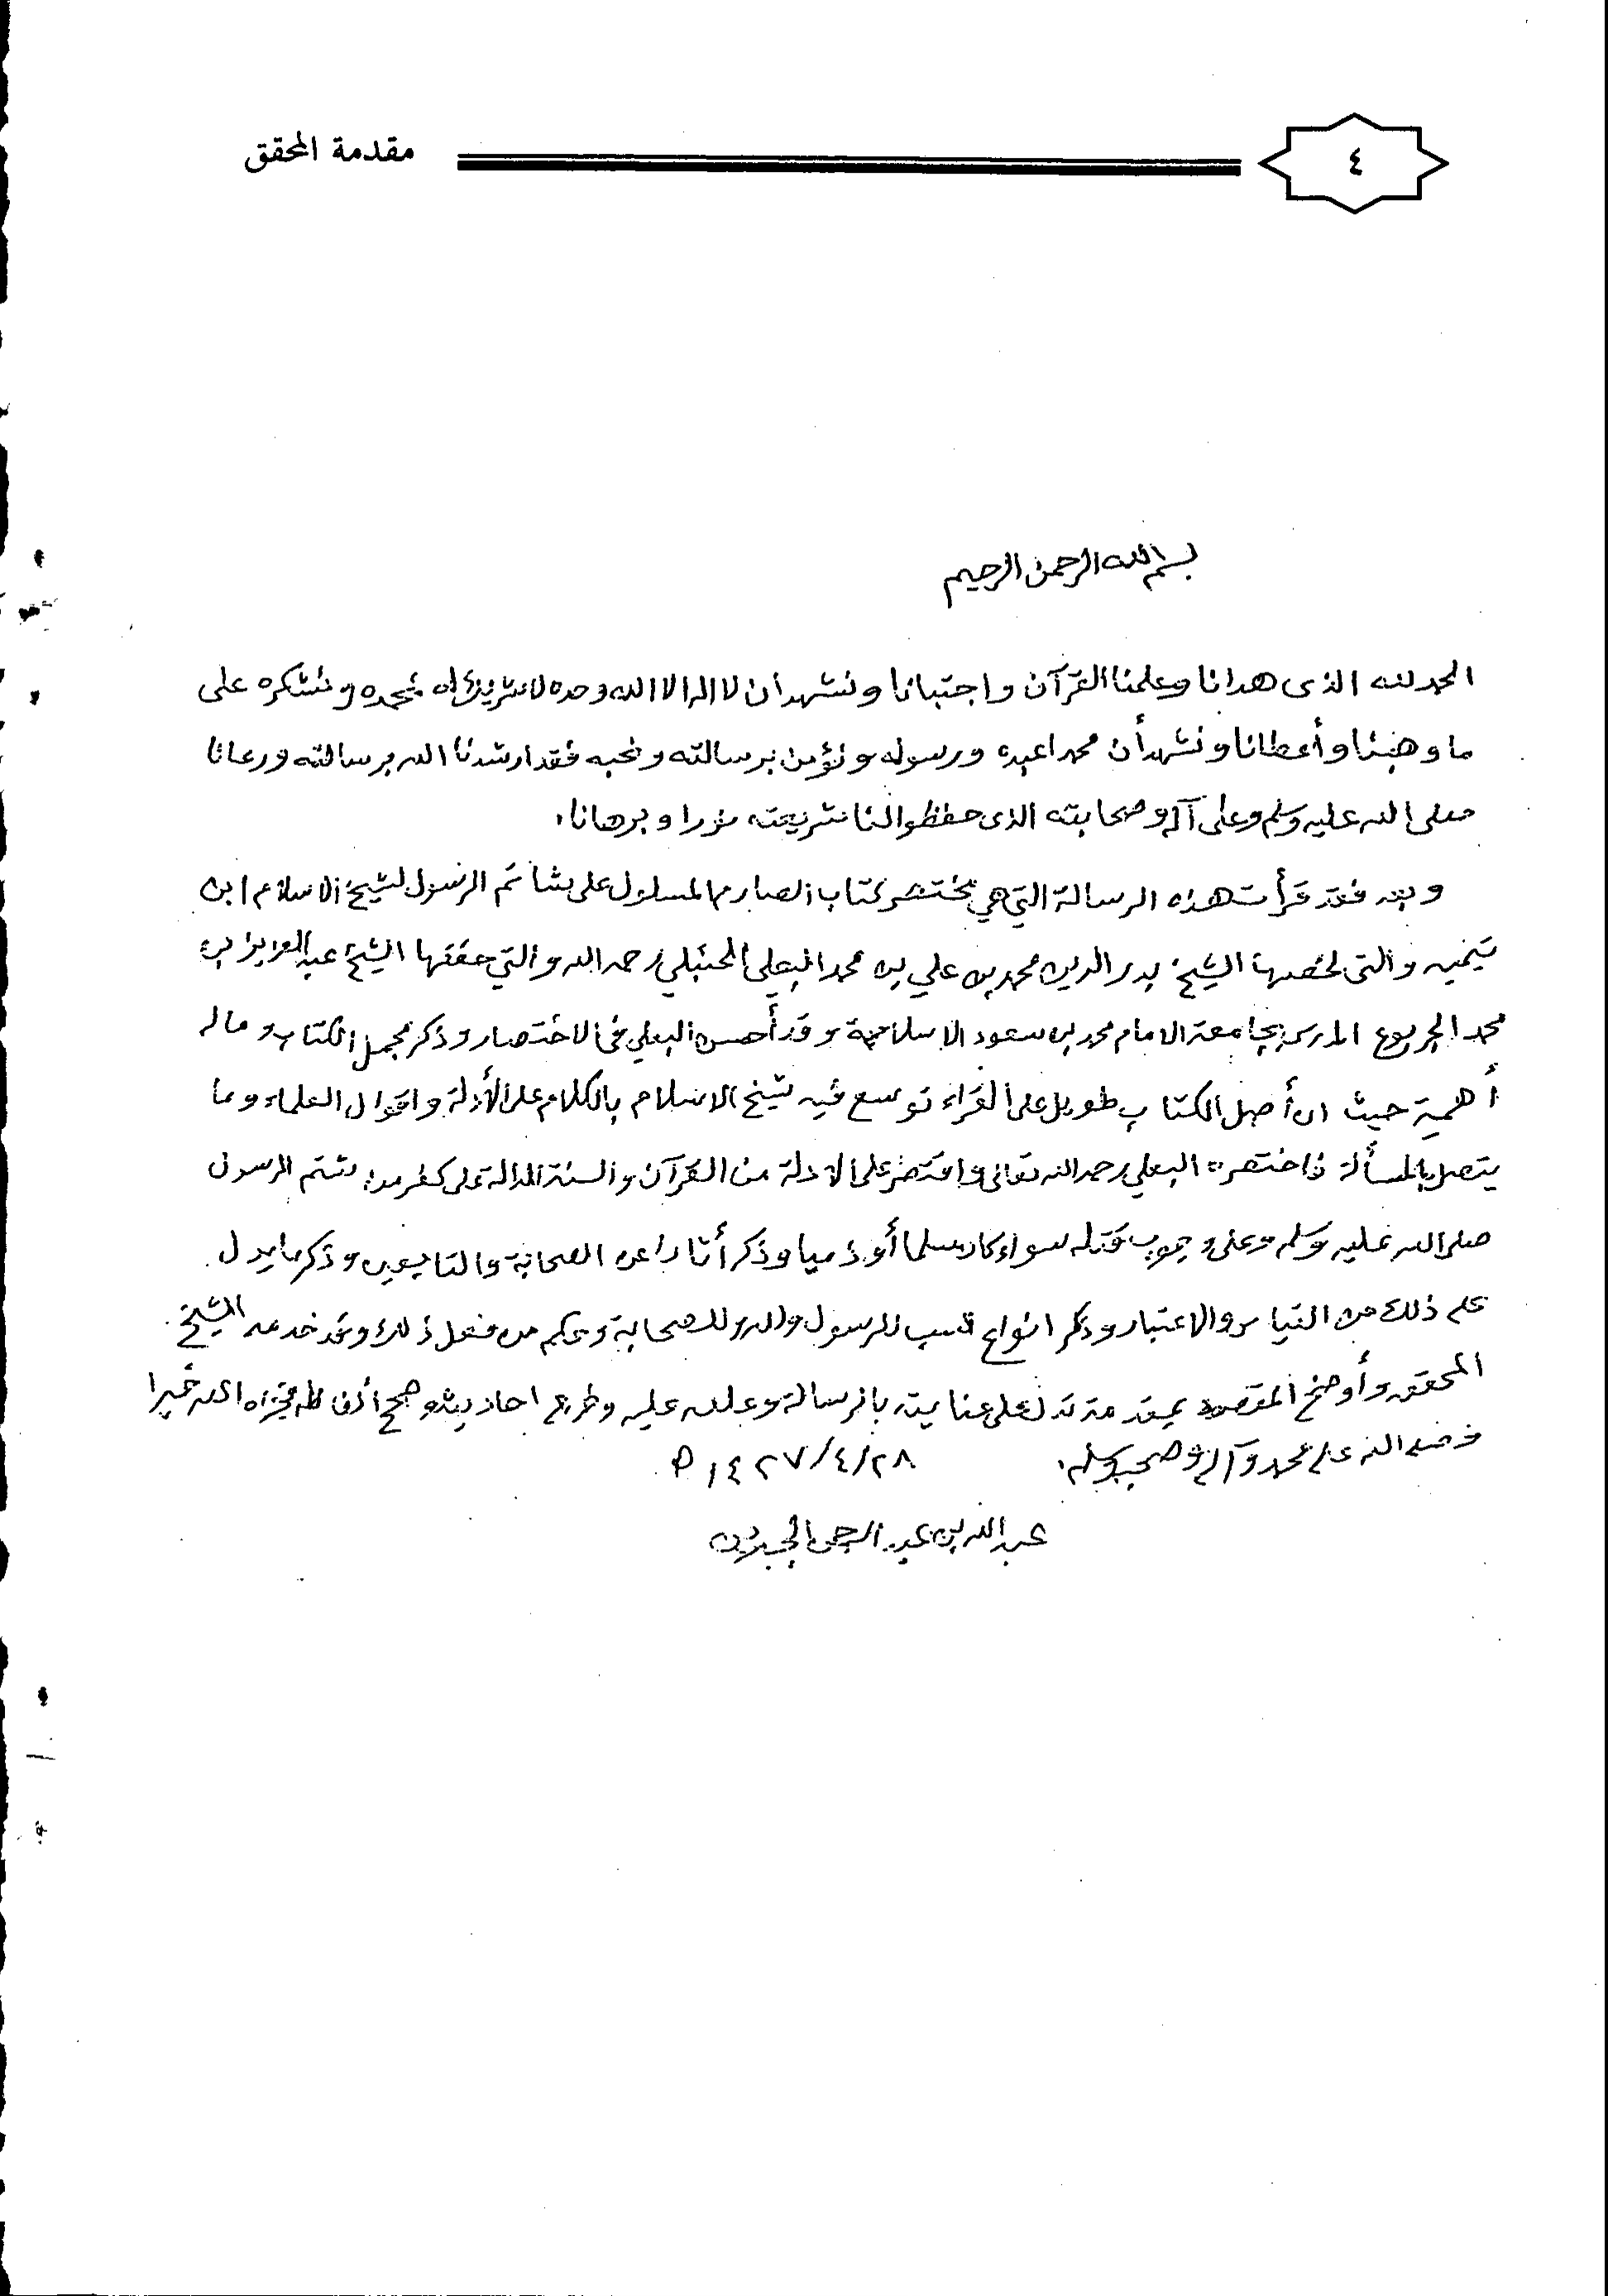 ٤
مقدمة المحقق
بسم الله الرحمن الرحيم
الحمد لله الذى هدانا وعلمنا القرآن واجتبانا ونشهد أن لا اله الا الله وحده لا شريك له نحمده ونشكره على
ما وهبنا وأعطانا ونشهد أن محمدا عبده ورسوله ونؤمن برسالته ونحبه فقد ارشدنا الله برسالته ورعانا
صلى الله عليه وسلم وعلى آله وصحابته الذى حفظوا لنا شريعته نورا وبرهانا،
وبعد فقد قرأت هذه الرسالة التي هي مختصر كتاب الصارم المسلول على شاتم الرسول لشيخ الاسلام ابن
تيميه والتى لخصها الشيخ بدر الدين محمد بن علي بن محمد البعلى الحنبلي رحمه الله والتي حققها الشيخ عبد العزيز بن
محمد الجربوع المدرس بجامعة الامام محمد بن سعود الاسلامية وقد أحسن البعلي فى الاختصار وذكر مجمل الكتاب وماله
أهمية حيث ان أصل الكتاب طويل على القراء توسع فيه شيخ الاسلام بالكلام على الأدلة واقوال العلماء وما
يتصل بالمسألة فاختصره البعلي رحمه الله تعالى واقتصر على الادلة من القرآن والسنة الدالة على كفر من شتم الرسول
صلى الله عليه وسلم وعلى وجوب قتله سواء كان مسلما أو ذميا وذكر أثارا عن الصحابة والتابعين وذكر ما يدل
على ذلك من القياس والاعتبار وذكر انواع السب للرسول ولله وللصحابة وحكم من فعل ذلك وقد خدمه الشيخ
المحقق وأوضح المقصود بمقدمة تدل على عنايته بالرسالة وعلق عليه وخرج احاديثه وصحح فجزاه الله خيرا
وصلى الله على محمد وآله وصحبه وسلم، ١٤٢٧/٤/٢٨ ه
عبد الله بن عبد الرحمن الجبرين